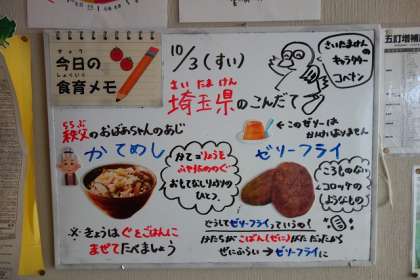 きょう
今日の
しょくいく
食育メモ
10/3(すい)
さいたまけん
埼玉県のこんだて
さいたまけんの
キャラクター
コバトン
ちちぶ
秩父のおばあちゃんのあじ
かてめし
かて→りょうを
ふやすためのぐ
おもてなしりょうりの
ひとつ。
※きょうはぐをごはんに
まぜてたべましょう
←このゼリーでは
かんけいありません
ゼリーフライ
ころものない
コロッケの
ようなもの
どうしてゼリーフライっていうの?
かたちがこばん(ぜに)がただったから
ぜにふらい→ゼリーフライに
五訂増補